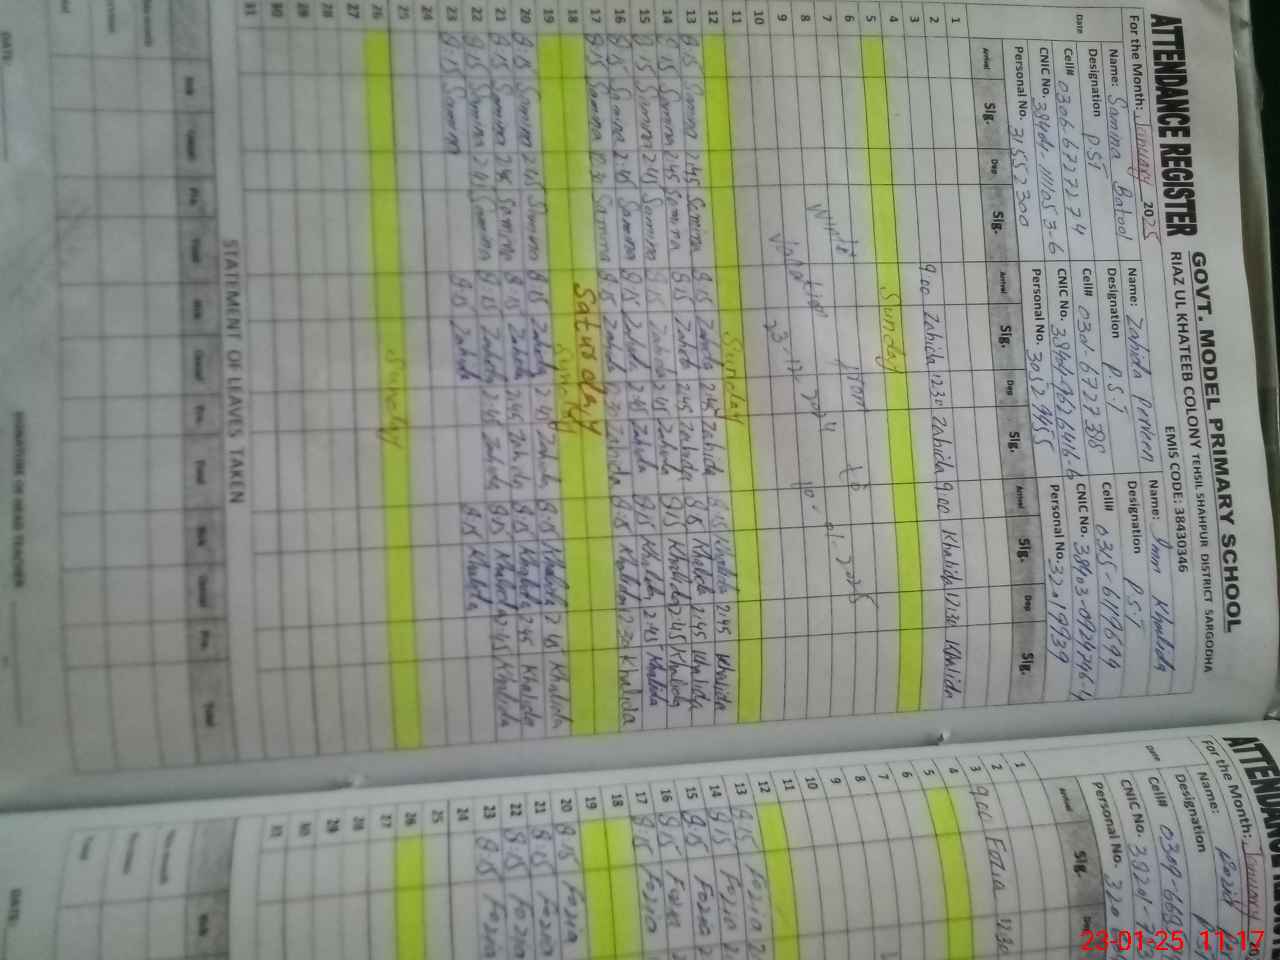 ATTENDANCE REGISTER
GOVT. MODEL PRIMARY SCHOOL
RIAZ UL KHATEEB COLONY TEHSIL SHAHPUR DISTRICT SARGODHA
For the Month: January 2025
EMIS CODE: 38430346
Name: Samina Batool
Designation PST
Cell# 0306 6727274
Personal No. 31552300
Name: Zahida Perveen
Designation P.S.T
Cell# 0301-6727398
Personal No. 30529455
Name: Umm Khalida
Designation P.S.T
Cell# 0315-6119694
Personal No. 32019939
Date Arrival Sig. Dep Sig. Arrival Sig. Dep Sig. Arrival Sig. Dep Sig.
1
2
3 9:00 Zahida 12:30 Zahida 9:00 Khalida 12:30 Khalida
4
5 Sunday
6 Winter
7 Vacation from to
8 23-12-2024 10-01-2025
9
10
11
12 Sunday
13 9.15 Samina 2.45 Samina 9.15 Zahida 2.45 Zahida 9.15 Khalida 2:45 Khalida
14 9.15 Samina 2.45 Samina 9.15 Zahida 2.45 Zahida 9.15 Khalida 2:45 Khalida
15 9.15 Samina 2.45 Samina 9.15 Zahida 2.45 Zahida 9.15 Khalida 2.45 Khalida
16 9.15 Samina 2.45 Samina 9.15 Zahida 2.45 Zahida 9.15 Khalida 2:45 Khalida
17 9.15 Samina 12.30 Samina 9.15 Zahida 12.30 Zahida 9.15 Khalida 12:30 Khalida
18 Saturday
19 Sunday
20 9.15 Samina 2.45 Samina 9.15 Zahida 2.45 Zahida 9.15 Khalida 2.45 Khalida
21 9.15 Samina 2.45 Samina 9.15 Zahida 2.45 Zahida 9.15 Khalida 2.45 Khalida
22 9.15 Samina 2.45 Samina 9.15 Zahida 2.45 Zahida 9.15 Khalida 2.45 Khalida
23 9.15 Samina 9.15 Zahida 9.15 Khalida
24
25
26 Sunday
27
28
29
30
31
STATEMENT OF LEAVES TAKEN
SIGNATURE OF HEAD TEACHER
DATE:
ATTENDANCE
For the Month: January
Name:
Designation
Cell# 0309-669
CNIC No. 38201
Personal No. 320
Date Arrival Sig.
1
2
3 9:00 Fozia 12:30
4
5
6
7
8
9
10
11
12
13 9.15 Fozia 2
14 9.15 Fozia 2
15 9.15 Fozia 2
16 9.15 Fozia
17 9.15 Fozia
18
19
20 9.15 Fozia
21 9.15 Fozia
22 9.15 Fozia
23 9.15 Fozia
24
25
26
27
28
29
30
31
DATE:
23-01-25 11:17